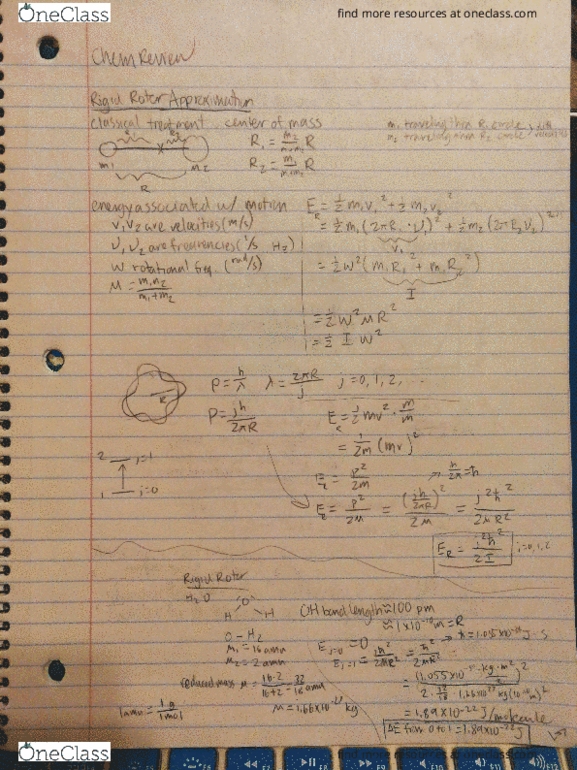 OneClass
find more resources at oneclass.com
Chem Review
Rigid Rotor Approximation
classical treatment center of mass
m₁ traveling thru R₁ circle
m₂ traveling thru R₂ circle
m₁ m₂
R
R₁ = m₂/(m₁+m₂) R
R₂ = m₁/(m₁+m₂) R
energy associated w/ motion
v₁ v₂ are velocities (m/s)
ν₁ ν₂ are frequencies (1/s Hz)
w rotational freq. (rad/s)
μ = m₁m₂/(m₁+m₂)
E = ½ m₁v₁² + ½ m₂v₂²
= ½ m₁(2πR₁·ν₁)² + ½ m₂(2πR₂ν₂)²
v₁
= ½ w²(m₁R₁² + m₂R₂²)
I
= ½ w² μR²
= ½ I w²
R
p = h/λ λ = 2πR/j j = 0, 1, 2, ...
p = jh/2πR
E = ½ mv² · m/m
= 1/2m (mv)²
E = p²/2m
h/2π = ħ
E = p²/2μ = (jh/2πR)²/2μ = j²ħ²/2μR²
E_R = j²ħ²/2I j = 0, 1, 2
2 j=1
1 j=0
Rigid Rotor
H₂O
O
H H
O-H₂
m₁ = 16 amu
m₂ = 2 amu
reduced mass μ = 16·2/16+2 = 32/18 amu
1 amu = 1g/1mol
μ = 1.66×10⁻²⁷ kg
OH bond length ≈ 100 pm
≈ 1×10⁻¹⁰ m = R
E j=0 = 0
ħ = 1.055×10⁻³⁴ J·s
E j=1 = 1ħ²/2μR² = ħ²/2μR²
= 1.89×10⁻²² J/molecule
ΔE from 0 to 1 = 1.89×10⁻²² J
OneClass